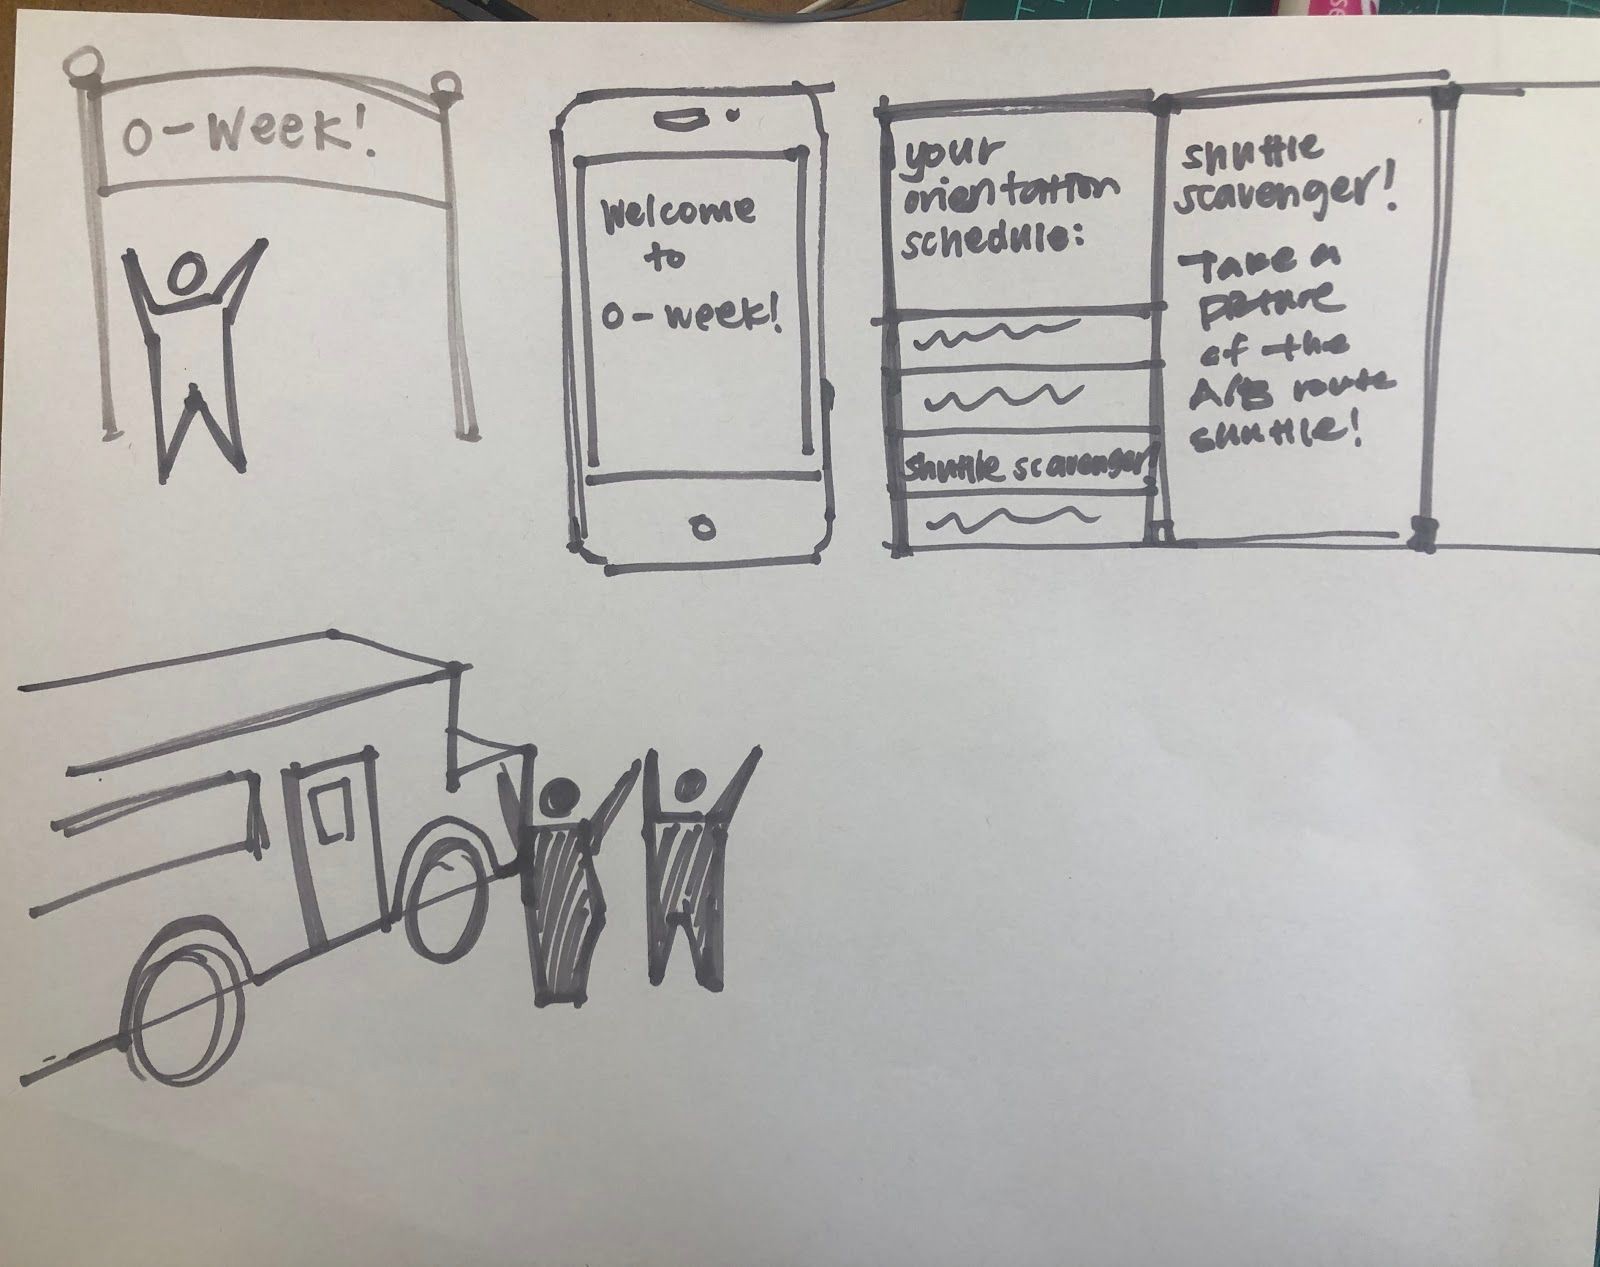 O-Week!
Welcome
to
O-week!
your
orientation
schedule:
shuttle scavenger!
shuttle
scavenger!
Take a
picture
of the
A/B route
shuttle!